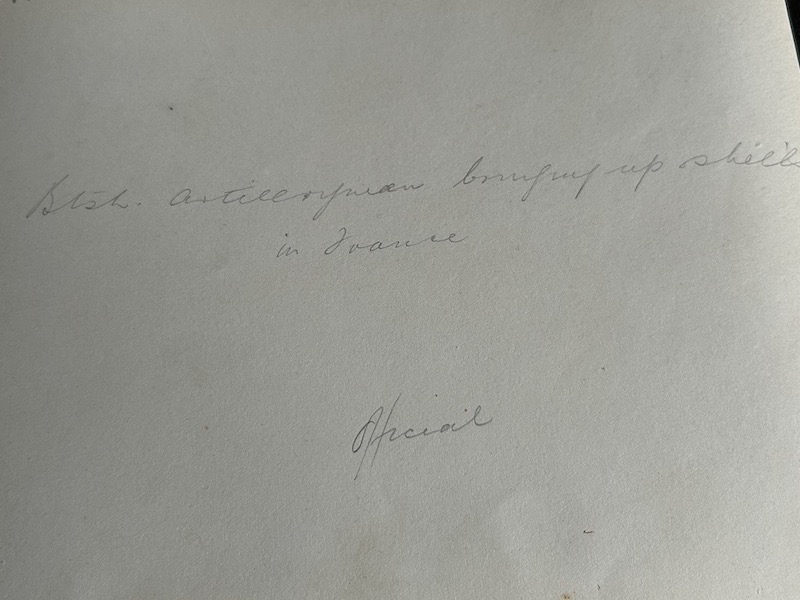 Btsh. artilleryman bringing up shells
in France
Official